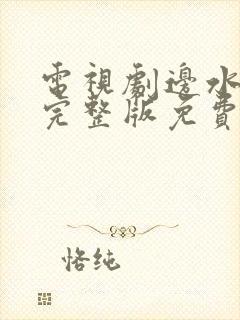 電視劇邊水
完整版免費
恪純